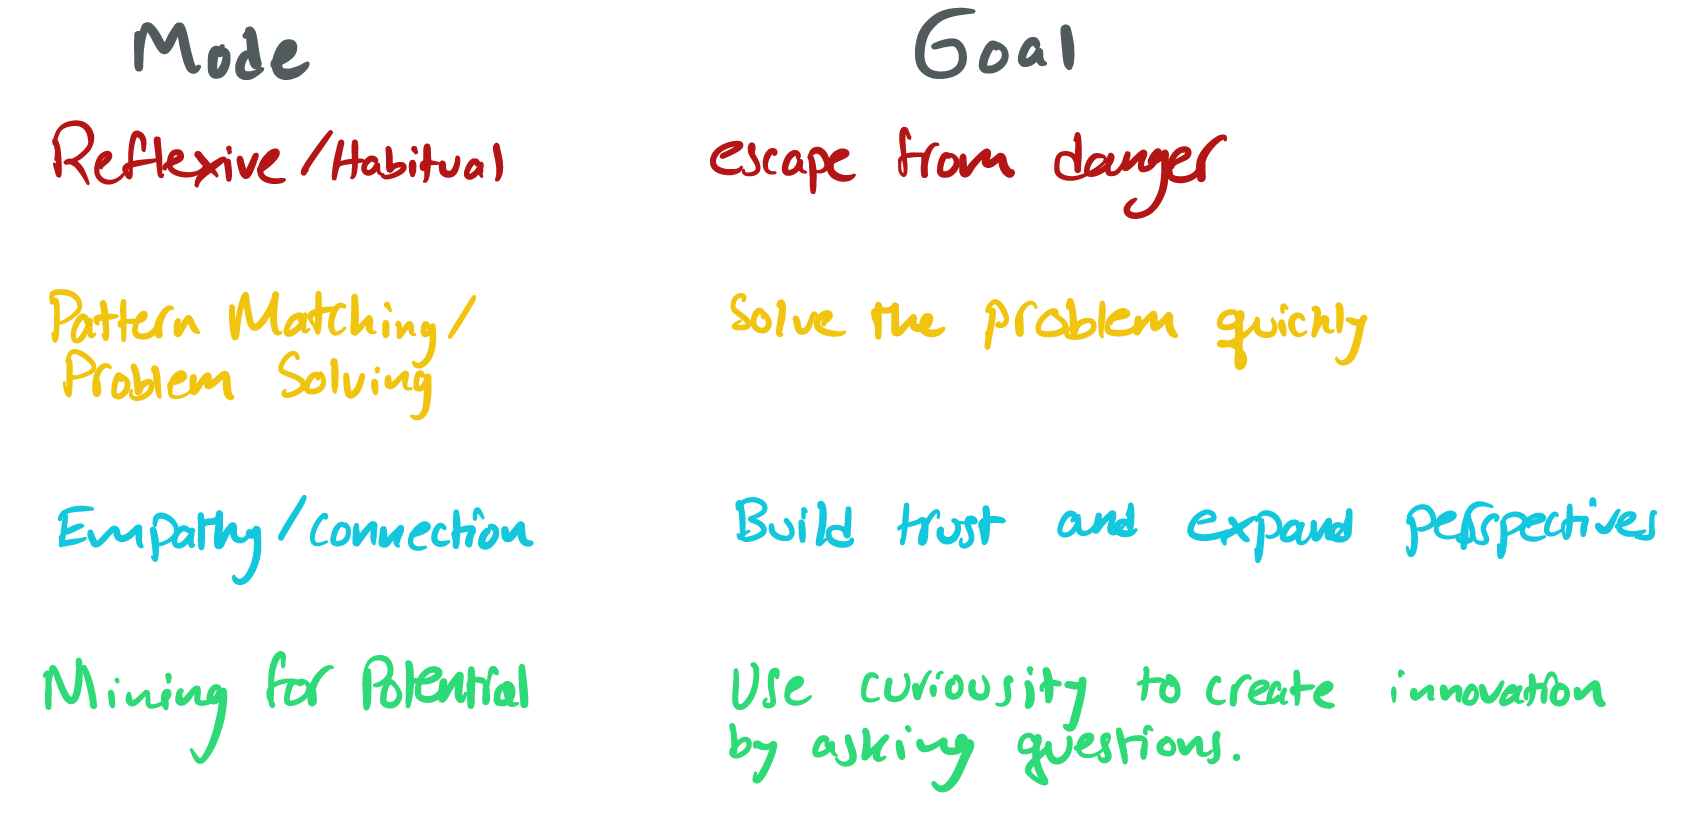 Mode Goal
Reflexive/Habitual escape from danger
Pattern Matching/ Solve the problem quickly
Problem Solving
Empathy/connection Build trust and expand perspectives
Mining for Potential Use curiousity to create innovation
by asking questions.